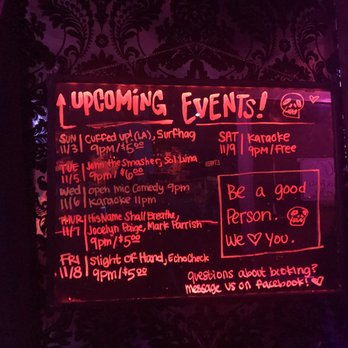 UPCOMING EVENTS!
SUN | Cuffed up! (LA), Surfhag
11/3 | 9pm/$5.00
TUE | John the Smasher, Sol Lima
11/5 | 9pm/$6.00
Wed | open mic Comedy 9pm
11/6 | karaoke 11pm
THUR | His Name Shall Breathe,
11/7 | Jocelyn Paige, Mark Parrish
9pm/$5.00
FRI | Slight of Hand, EchoCheck
11/8 | 9pm/$5.00
SAT | Karaoke
11/9 | 9pm/Free
Be a good
Person.
We ♡ You.
questions about booking?
message us on facebook!